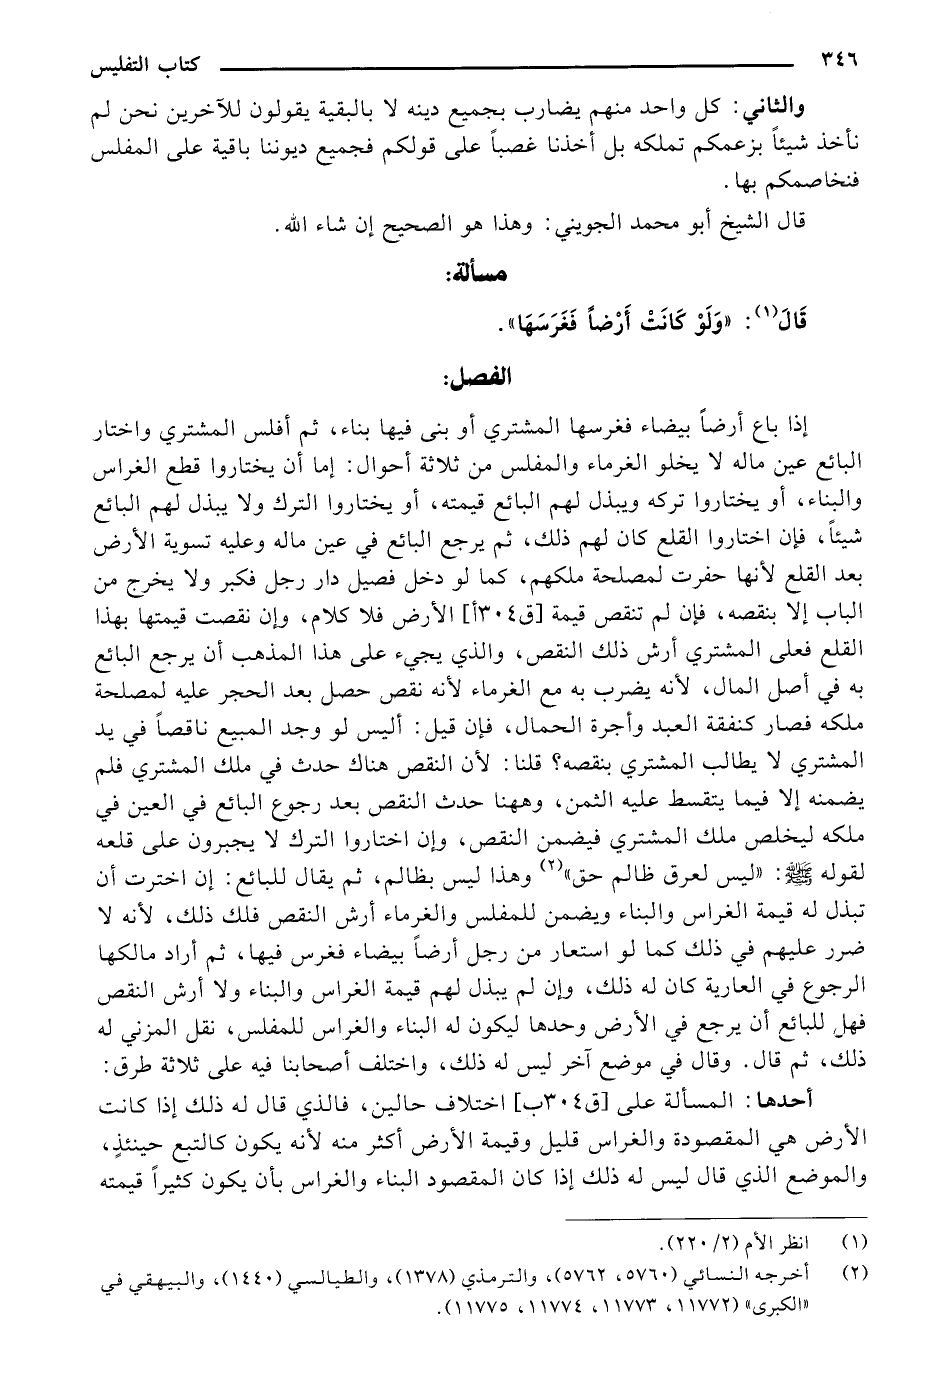 ٣٤٦ كتاب التفليس
والثاني: كل واحد منهم يضارب بجميع دينه لا بالبقية يقولون للآخرين نحن لم
نأخذ شيئاً بزعمكم تملكه بل أخذنا غصباً على قولكم فجميع ديوننا باقية على المفلس
فنخاصمكم بها.
قال الشيخ أبو محمد الجويني: وهذا هو الصحيح إن شاء الله.
مسألة:
قَالَ(١): «وَلَوْ كَانَتْ أَرْضاً فَغَرَسَهَا».
الفصل:
إذا باع أرضاً بيضاء فغرسها المشتري أو بنى فيها بناء، ثم أفلس المشتري واختار
البائع عين ماله لا يخلو الغرماء والمفلس من ثلاثة أحوال: إما أن يختاروا قطع الغراس
والبناء، أو يختاروا تركه ويبذل لهم البائع قيمته، أو يختاروا الترك ولا يبذل لهم البائع
شيئاً، فإن اختاروا القلع كان لهم ذلك، ثم يرجع البائع في عين ماله وعليه تسوية الأرض
بعد القلع لأنها حفرت لمصلحة ملكهم، كما لو دخل فصيل دار رجل فكبر ولا يخرج من
الباب إلا بنقصه، فإن لم تنقص قيمة [ق٣٠٤أ] الأرض فلا كلام، وإن نقصت قيمتها بهذا
القلع فعلى المشتري أرش ذلك النقص، والذي يجيء على هذا المذهب أن يرجع البائع
به في أصل المال، لأنه يضرب به مع الغرماء لأنه نقص حصل بعد الحجر عليه لمصلحة
ملكه فصار كنفقة العبد وأجرة الحمال، فإن قيل: أليس لو وجد المبيع ناقصاً في يد
المشتري لا يطالب المشتري بنقصه؟ قلنا: لأن النقص هناك حدث في ملك المشتري فلم
يضمنه إلا فيما يتقسط عليه الثمن، وههنا حدث النقص بعد رجوع البائع في العين في
ملكه ليخلص ملك المشتري فيضمن النقص، وإن اختاروا الترك لا يجبرون على قلعه
لقوله ﷺ: «ليس لعرق ظالم حق»(٢) وهذا ليس بظالم، ثم يقال للبائع: إن اخترت أن
تبذل له قيمة الغراس والبناء ويضمن للمفلس والغرماء أرش النقص فلك ذلك، لأنه لا
ضرر عليهم في ذلك كما لو استعار من رجل أرضاً بيضاء فغرس فيها، ثم أراد مالكها
الرجوع في العارية كان له ذلك، وإن لم يبذل لهم قيمة الغراس والبناء ولا أرش النقص
فهل للبائع أن يرجع في الأرض وحدها ليكون له البناء والغراس للمفلس، نقل المزني له
ذلك، ثم قال. وقال في موضع آخر ليس له ذلك، واختلف أصحابنا فيه على ثلاثة طرق:
أحدها: المسألة على [ق٣٠٤ب] اختلاف حالين، فالذي قال له ذلك إذا كانت
الأرض هي المقصودة والغراس قليل وقيمة الأرض أكثر منه لأنه يكون كالتبع حينئذٍ،
والموضع الذي قال ليس له ذلك إذا كان المقصود البناء والغراس بأن يكون كثيراً قيمته
(١) انظر الأم (٢/ ٢٢٠).
(٢) أخرجه النسائي (٥٧٦٠، ٥٧٦٢)، والترمذي (١٣٧٨)، والطيالسي (١٤٤٠)، والبيهقي في
«الكبرى» (١١٧٧٢، ١١٧٧٣، ١١٧٧٤، ١١٧٧٥).